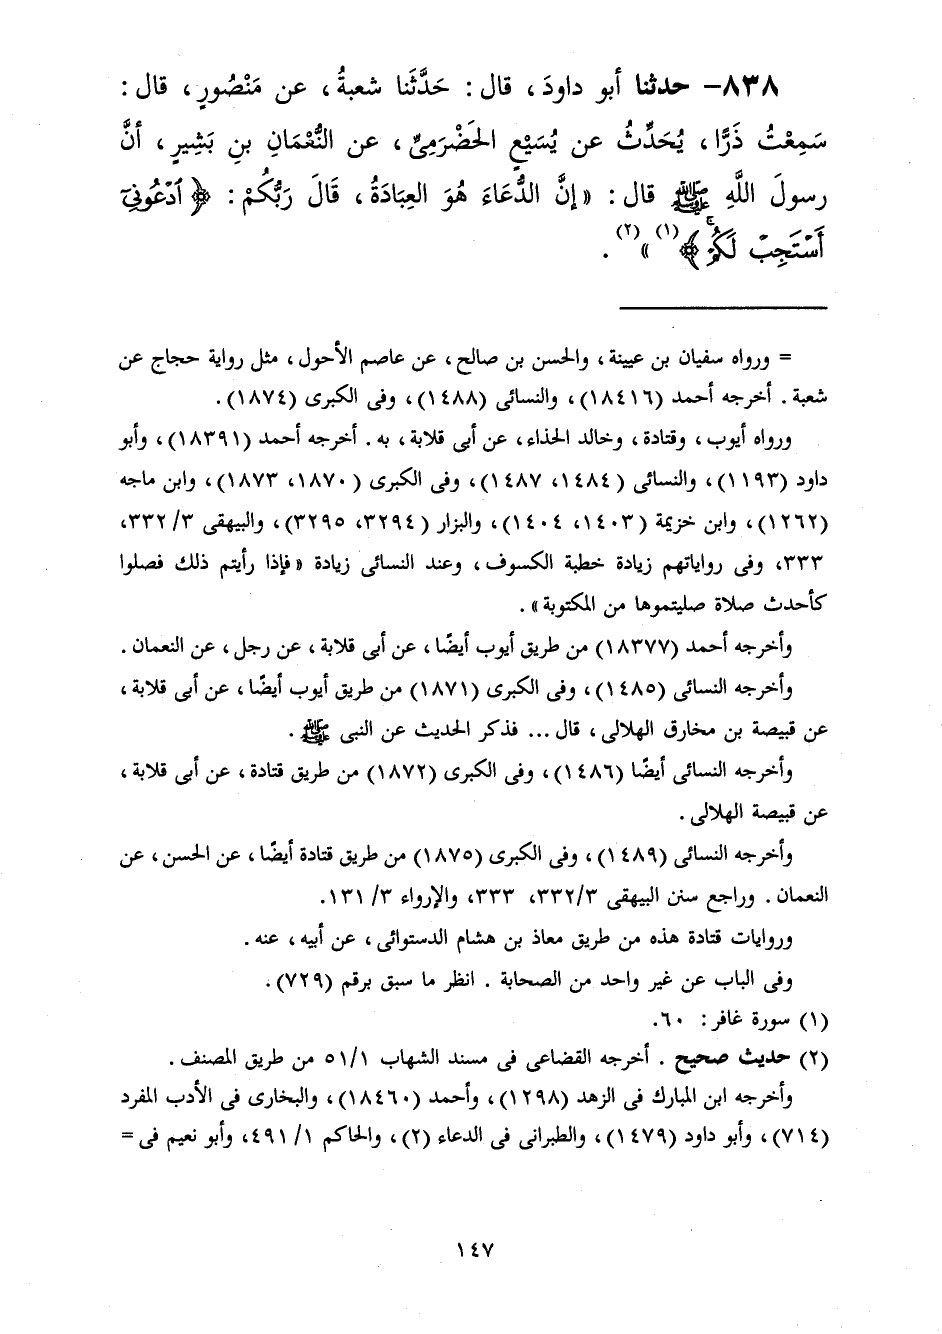 ٨٣٨- حدثنا أبو داودَ، قال: حَدَّثَنا شعبةُ، عن مَنْصُورٍ، قال:
سَمِعْتُ ذَرًّا، يُحَدِّثُ عن يُسَيْعٍ الحَضْرَمِيِّ، عن النُّعْمَانِ بنِ بَشِيرٍ، أنَّ
رسولَ اللَّهِ ﷺ قال: «إنَّ الدُّعَاءَ هُوَ العِبَادَةُ، قَالَ رَبُّكُمْ: ﴿ٱدْعُونِىٓ
أَسْتَجِبْ لَكُمْۚ﴾(١)»(٢).
= ورواه سفيان بن عيينة، والحسن بن صالح، عن عاصم الأحول، مثل رواية حجاج عن
شعبة. أخرجه أحمد (١٨٤١٦)، والنسائى (١٤٨٨)، وفى الكبرى (١٨٧٤).
ورواه أيوب، وقتادة، وخالد الحذاء، عن أبى قلابة، به. أخرجه أحمد (١٨٣٩١)، وأبو
داود (١١٩٣)، والنسائى (١٤٨٤، ١٤٨٧)، وفى الكبرى (١٨٧٠، ١٨٧٣)، وابن ماجه
(١٢٦٢)، وابن خزيمة (١٤٠٣، ١٤٠٤)، والبزار (٣٢٩٤، ٣٢٩٥)، والبيهقى ٣/ ٣٣٢،
٣٣٣، وفى رواياتهم زيادة خطبة الكسوف، وعند النسائى زيادة «فإذا رأيتم ذلك فصلوا
كأحدث صلاة صليتموها من المكتوبة».
وأخرجه أحمد (١٨٣٧٧) من طريق أيوب أيضًا، عن أبى قلابة، عن رجل، عن النعمان.
وأخرجه النسائى (١٤٨٥)، وفى الكبرى (١٨٧١) من طريق أيوب أيضًا، عن أبى قلابة،
عن قبيصة بن مخارق الهلالى، قال... فذكر الحديث عن النبى ﷺ.
وأخرجه النسائى أيضًا (١٤٨٦)، وفى الكبرى (١٨٧٢) من طريق قتادة، عن أبى قلابة،
عن قبيصة الهلالى.
وأخرجه النسائى (١٤٨٩)، وفى الكبرى (١٨٧٥) من طريق قتادة أيضًا، عن الحسن، عن
النعمان. وراجع سنن البيهقى ٣/ ٣٣٢، ٣٣٣، والإرواء ٣/ ١٣١.
وروايات قتادة هذه من طريق معاذ بن هشام الدستوائى، عن أبيه، عنه.
وفى الباب عن غير واحد من الصحابة. انظر ما سبق برقم (٧٢٩).
(١) سورة غافر: ٦٠.
(٢) حديث صحيح. أخرجه القضاعى فى مسند الشهاب ١/ ٥١ من طريق المصنف.
وأخرجه ابن المبارك فى الزهد (١٢٩٨)، وأحمد (١٨٤٦٠)، والبخارى فى الأدب المفرد
(٧١٤)، وأبو داود (١٤٧٩)، والطبرانى فى الدعاء (٢)، والحاكم ١/ ٤٩١، وأبو نعيم فى =
١٤٧